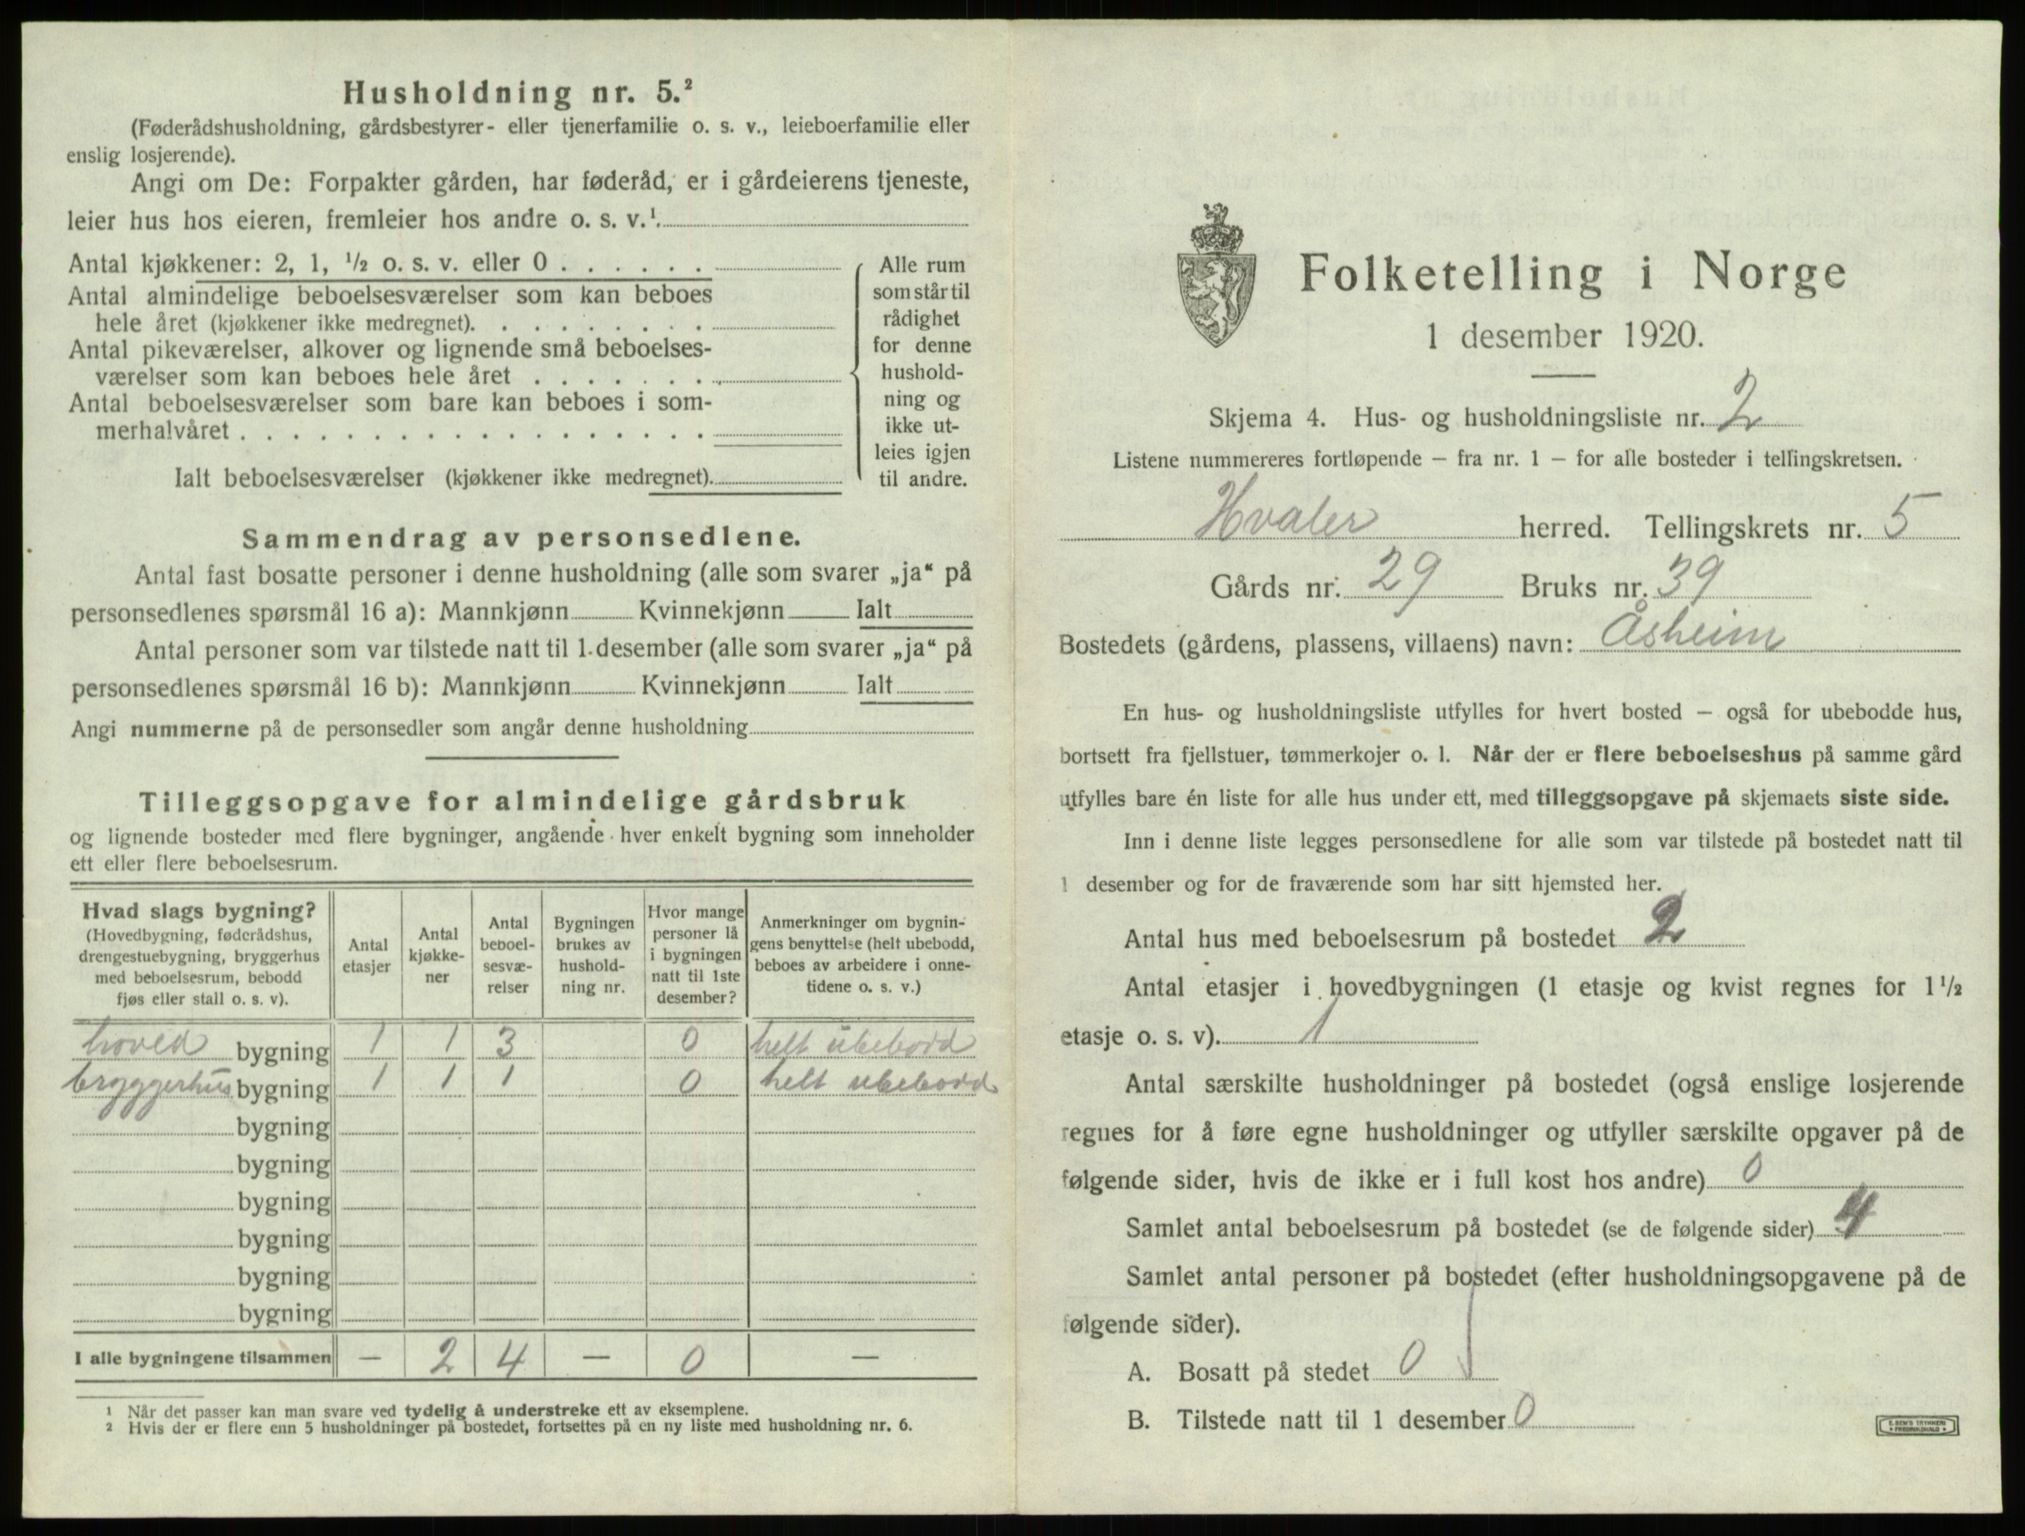 Husholdning nr. 5.²
(Føderådshusholdning, gårdsbestyrer- eller tjenerfamilie o. s. v., leieboerfamilie eller
enslig losjerende).
Angi om De: Forpakter gården, har føderåd, er i gårdeierens tjeneste,
leier hus hos eieren, fremleier hos andre o. s. v.¹.
Antal kjøkkener: 2, 1, ½ o. s. v. eller 0 . . . . . .
Antal almindelige beboelsesværelser som kan beboes
hele året (kjøkkener ikke medregnet). . . . . . . . .
Antal pikeværelser, alkover og lignende små beboelses-
værelser som kan beboes hele året . . . . . . .
Antal beboelsesværelser som bare kan beboes i som-
merhalvåret . . . . . . . . . . . . . . . . . .
Ialt beboelsesværelser (kjøkkener ikke medregnet).
Alle rum
som står til
rådighet
for denne
hushold-
ning og
ikke ut-
leies igjen
til andre.
Sammendrag av personsedlene.
Antal fast bosatte personer i denne husholdning (alle som svarer „ja“ på
personsedlenes spørsmål 16 a): Mannkjønn Kvinnekjønn Ialt
Antal personer som var tilstede natt til 1. desember (alle som svarer „ja“ på
personsedlenes spørsmål 16 b): Mannkjønn Kvinnekjønn Ialt
Angi nummerne på de personsedler som angår denne husholdning
Tilleggsopgave for almindelige gårdsbruk
og lignende bosteder med flere bygninger, angående hver enkelt bygning som inneholder
ett eller flere beboelsesrum.
Hvad slags bygning?
(Hovedbygning, føderådshus,
drengestuebygning, bryggerhus
med beboelsesrum, bebodd
fjøs eller stall o. s. v).
Antal
etasjer
Antal
kjøkke-
ner
Antal
beboel-
sesvæ-
relser
Bygningen
brukes av
hushold-
ning nr.
Hvor mange
personer lå
i bygningen
natt til 1ste
desember?
Anmerkninger om bygnin-
gens benyttelse (helt ubebodd,
beboes av arbeidere i onne-
tidene o. s. v.)
hoved bygning 1 1 3 0 helt ubebodd
bryggerhus bygning 1 1 1 0 helt ubebodd
bygning
bygning
bygning
bygning
bygning
bygning
I alle bygningene tilsammen — 2 4 — 0 —
¹ Når det passer kan man svare ved tydelig å understreke ett av eksemplene.
² Hvis der er flere enn 5 husholdninger på bostedet, fortsettes på en ny liste med husholdning nr. 6.
Folketelling i Norge
1 desember 1920.
Skjema 4. Hus- og husholdningsliste nr. 2
Listene nummereres fortløpende — fra nr. 1 — for alle bosteder i tellingskretsen.
Hvaler herred. Tellingskrets nr. 5
Gårds nr. 29 Bruks nr. 39
Bostedets (gårdens, plassens, villaens) navn: Åsheim
En hus- og husholdningsliste utfylles for hvert bosted — også for ubebodde hus,
bortsett fra fjellstuer, tømmerkojer o. l. Når der er flere beboelseshus på samme gård
utfylles bare én liste for alle hus under ett, med tilleggsopgave på skjemaets siste side.
Inn i denne liste legges personsedlene for alle som var tilstede på bostedet natt til
1 desember og for de fraværende som har sitt hjemsted her.
Antal hus med beboelsesrum på bostedet 2
Antal etasjer i hovedbygningen (1 etasje og kvist regnes for 1½
etasje o. s. v). 1
Antal særskilte husholdninger på bostedet (også enslige losjerende
regnes for å føre egne husholdninger og utfyller særskilte opgaver på de
følgende sider, hvis de ikke er i full kost hos andre) 0
Samlet antal beboelsesrum på bostedet (se de følgende sider) 4
Samlet antal personer på bostedet (efter husholdningsopgavene på de
følgende sider).
A. Bosatt på stedet 0
B. Tilstede natt til 1 desember 0